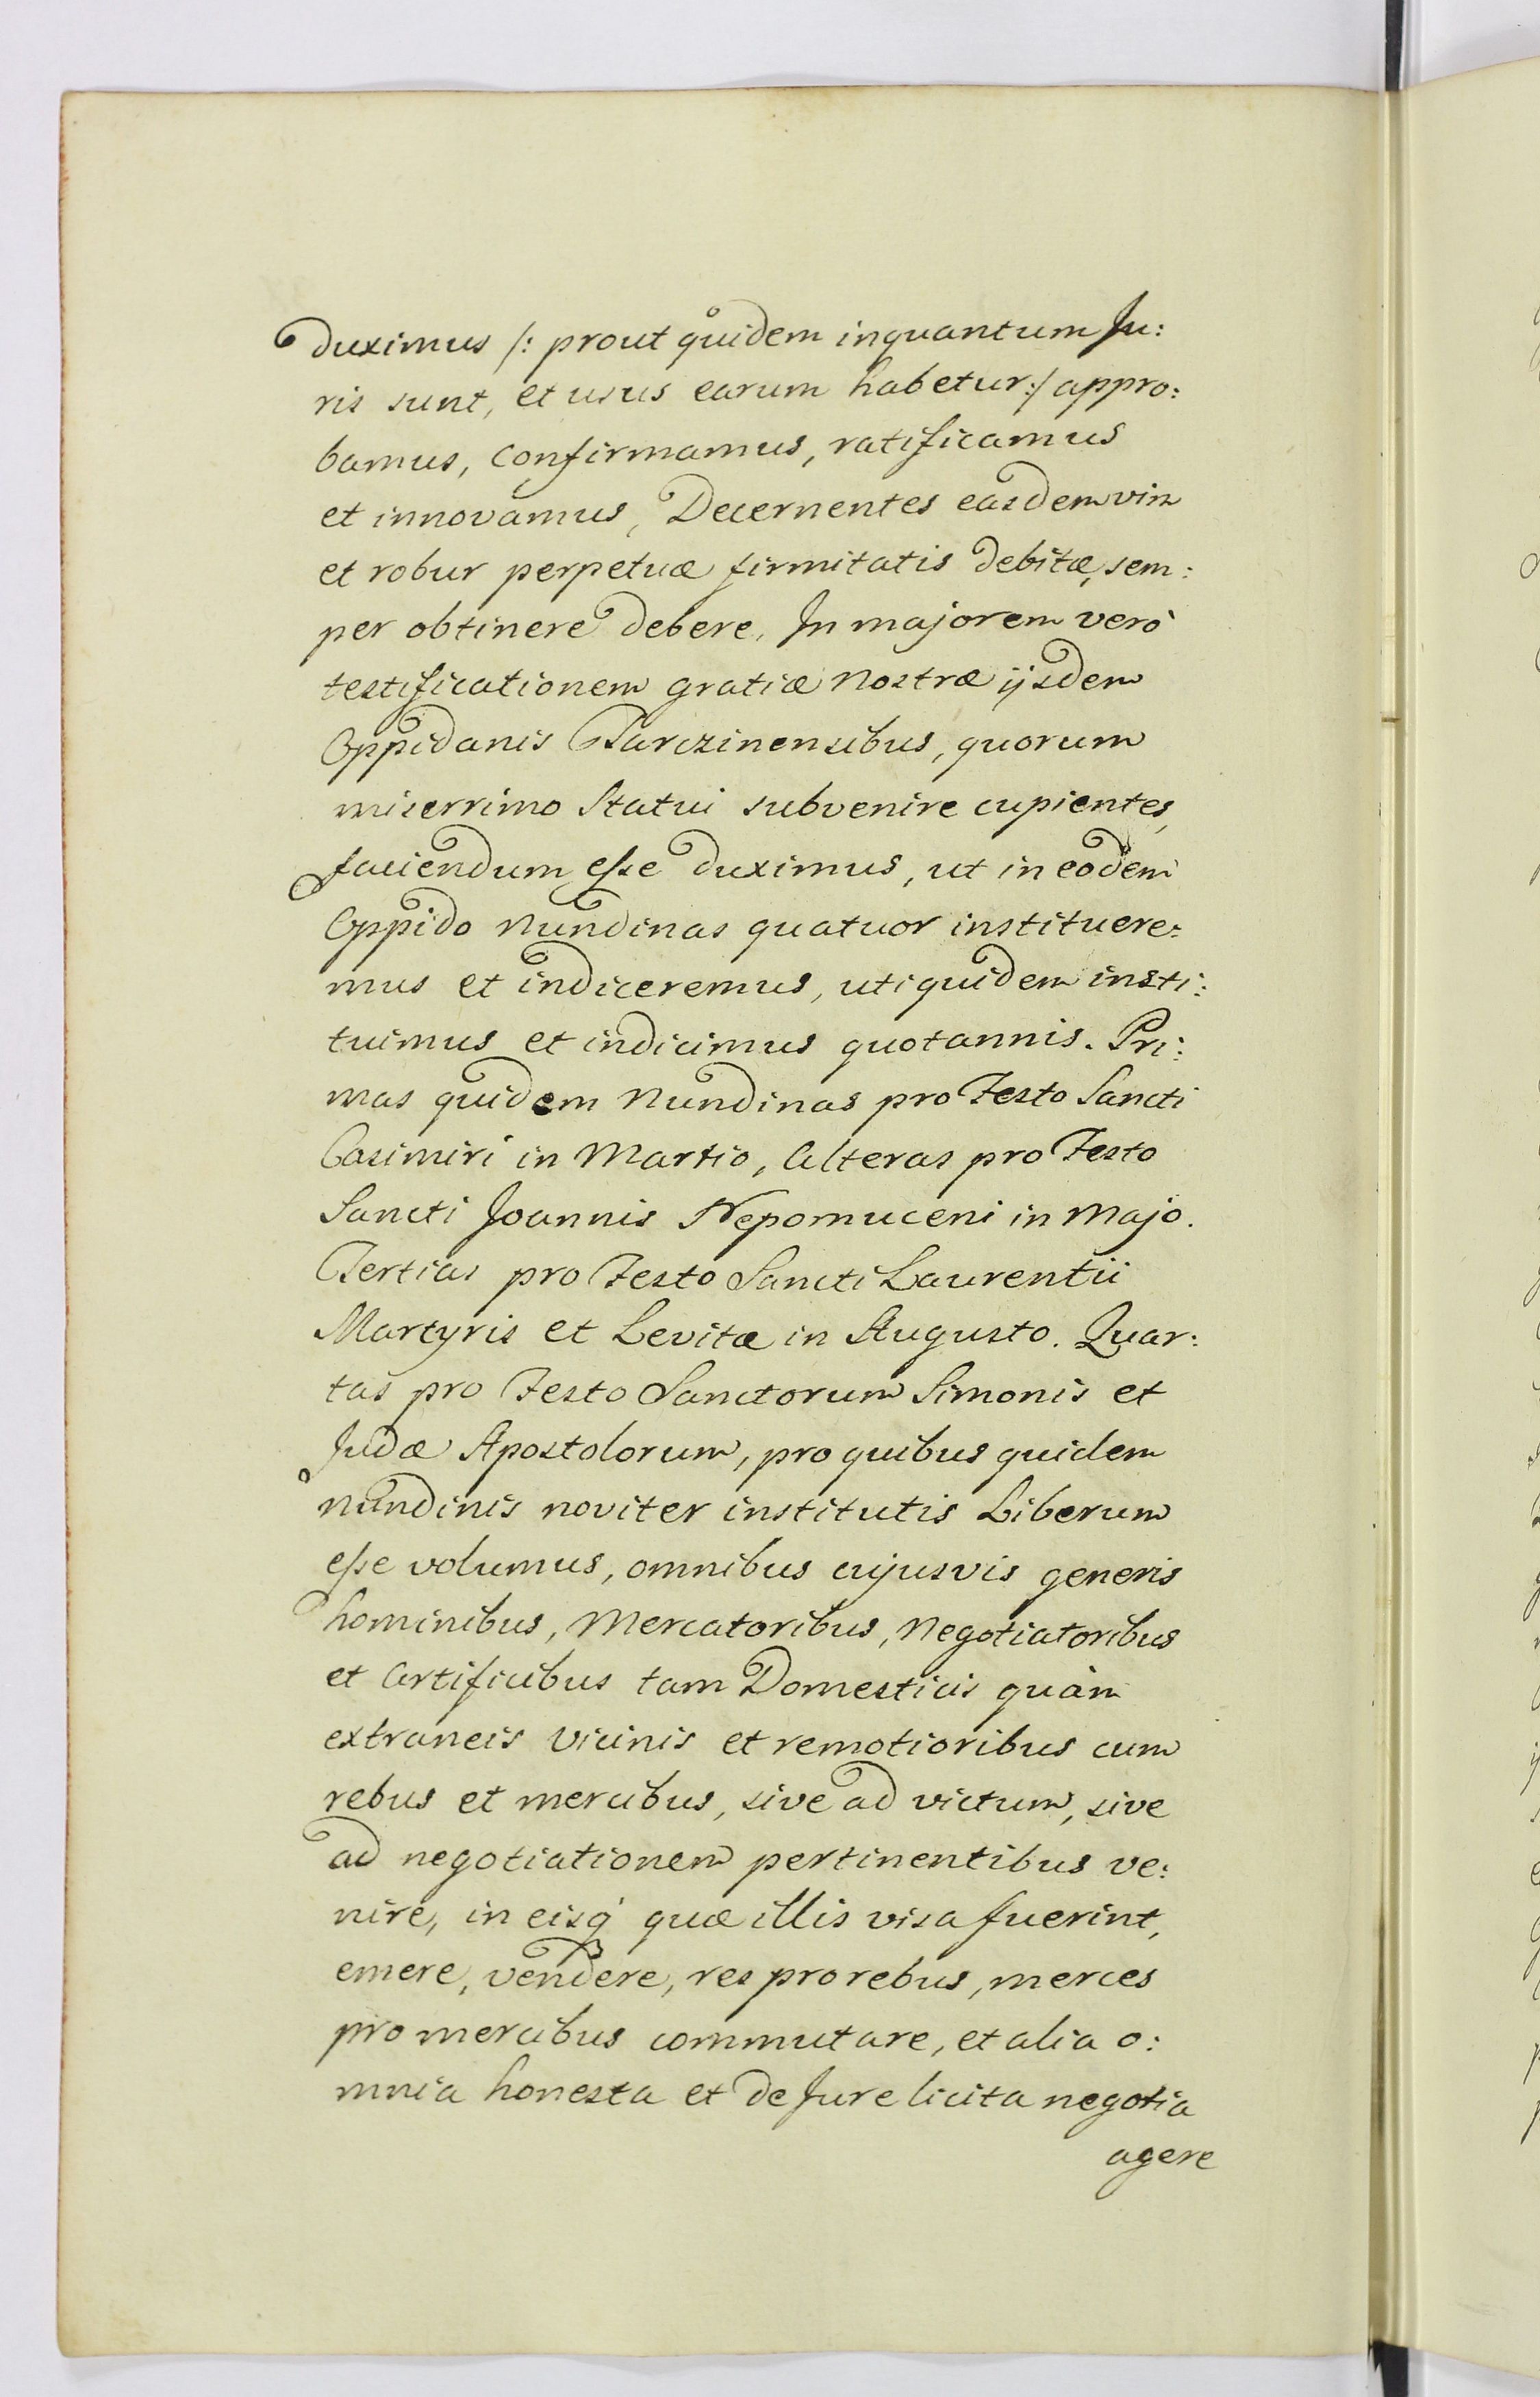 duximus /: prout quidem inquantum Ju:
ris sunt, et usus earum habetur:/ appro:
bamus, confirmamus, ratificamus
et innovamus, Decernentes easdem vim
et robur perpetuæ firmitatis debitæ, sem:
per obtinere debere. In majorem verò
testificationem gratiæ nostræ ijsdem
Oppidanis Tarczinensibus, quorum
miserrimo Statui subvenire cupientes,
faciendum esse duximus, ut in eodem
Oppido Nundinas quatuor institueré:
mus et indiceremus, uti quidem insti:
tuimus et indicimus quotannis. Pri:
mas quidem Nundinas pro Festo Sancti
Casimiri in Martio, Alteras pro Festo
Sancti Joannis Nepomuceni in Majo.
Tertias pro Festo Sancti Laurentii
Martyris et Levitæ in Augusto. Quar:
tas pro Festo Sanctorum Simonis et
Judæ Apostolorum, pro quibus quidem
nundinis noviter institutis Liberum
esse volumus, omnibus cujusvis generis
hominibus, Mercatoribus, Negotiatoribus
et Artificibus tam Domesticis quàm
extraneis vicinis et remotioribus cum
rebus et mercibus, sive ad victum, sive
ad negotiationem pertinentibus ve:
nire, in eisq́ quæ illis visa fuerint,
emere, vendere, res pro rebus, merces
pro mercibus commutare, et alia o:
mnia honesta et de Jure licita negotia
agere